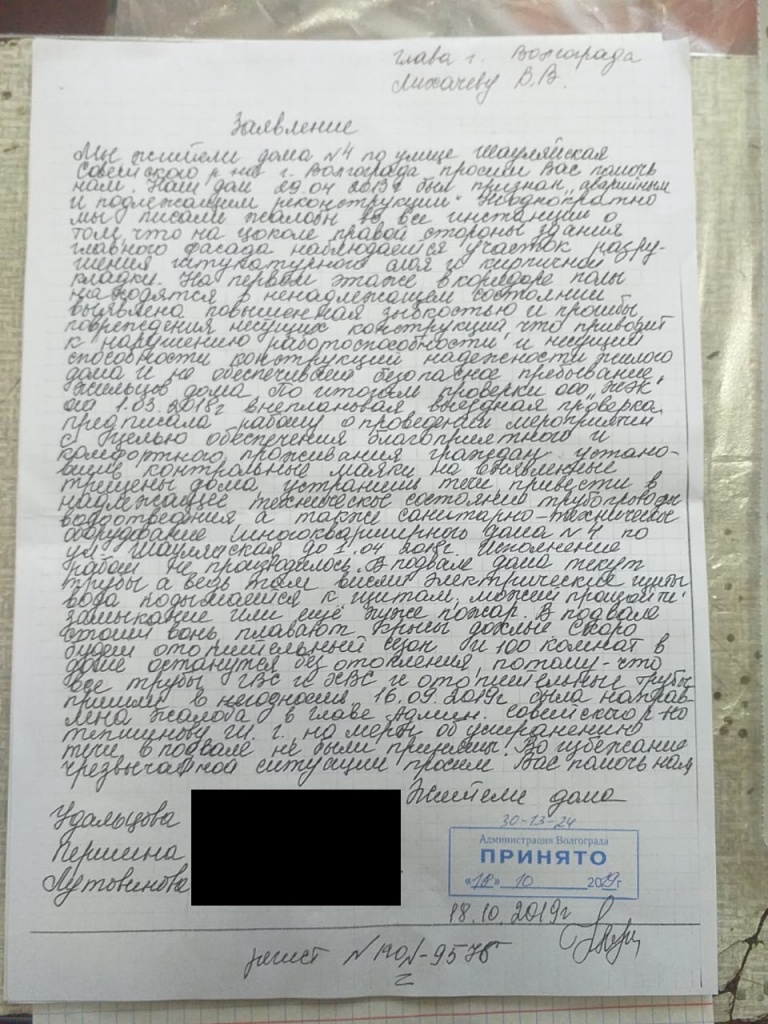 Глава г. Волгограда
Лихачеву В.В.
Заявление
Мы жители дома №4 по улице Шауляйская
Советского р-на г. Волгограда просим Вас помочь
нам. Наш дом 29.04 2013г был признан „аварийным
и подлежащим реконструкции" Неоднократно
мы писали жалобы во все инстанции о
том что на цоколе правой стороны здания
главного фасада наблюдается участок разру-
шения штукатурного слоя и кирпичной
кладки. На первом этаже в коридоре полы
находятся в ненадлежащем состоянии
выявлена повышенная зыбкостью и прогибы
повреждения несущих конструкций, что приводит
к нарушению работоспособности и несущий
способности конструкций надежности жилого
дома и не обеспечивает безопасное пребывание
жильцов дома. По итогам проверки ооо „ЖЭК"
на 1.03.2018г внеплановая выездная проверка
предписала работы о проведении мероприятий
с целью обеспечения благоприятного и
комфортного проживания граждан устано-
вить контрольные маяки на выявленные
трещены дома устранить течи привести в
надлежащее техническое состояние трубопроводы
водоотведения а также санитарно-техническое
оборудование многоквартирного дома №4 по
ул. Шауляйская до 1.04 2018г. Исполнение
работ не производилось. В подвале дома текут
трубы а ведь там висят электрические щиты
вода подымается к щитам, может произойти
замыкание или ещё хуже пожар. В подвале
стоит вонь плавают крысы дохлые Скоро
будет отопительный сезон и 100 комнат в
доме останутся без отопления, потому-что
все трубы ГВС и ХВС и отопительные трубы
пришли в негодность 16.09.2019г была направ-
лена жалоба в главе Админ. Советского р-на
но меры об устранению
течи в подвале не были приняты! Во избежание
чрезвычайной ситуации просим Вас помочь нам
Жители дома
Удальцова
Першина
Лутовинова
30-13-24
Администрация Волгограда
ПРИНЯТО
«18» 10 2019г
18.10.2019г
№